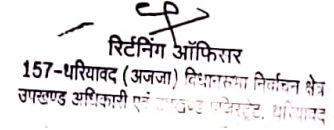 रिर्टनिंग ऑफिसर
157-धरियावद (अजजा) विधानसभा निर्वाचन क्षेत्र
उपखण्ड अधिकारी एवं उपखण्ड मजिस्ट्रेट, धरियावद